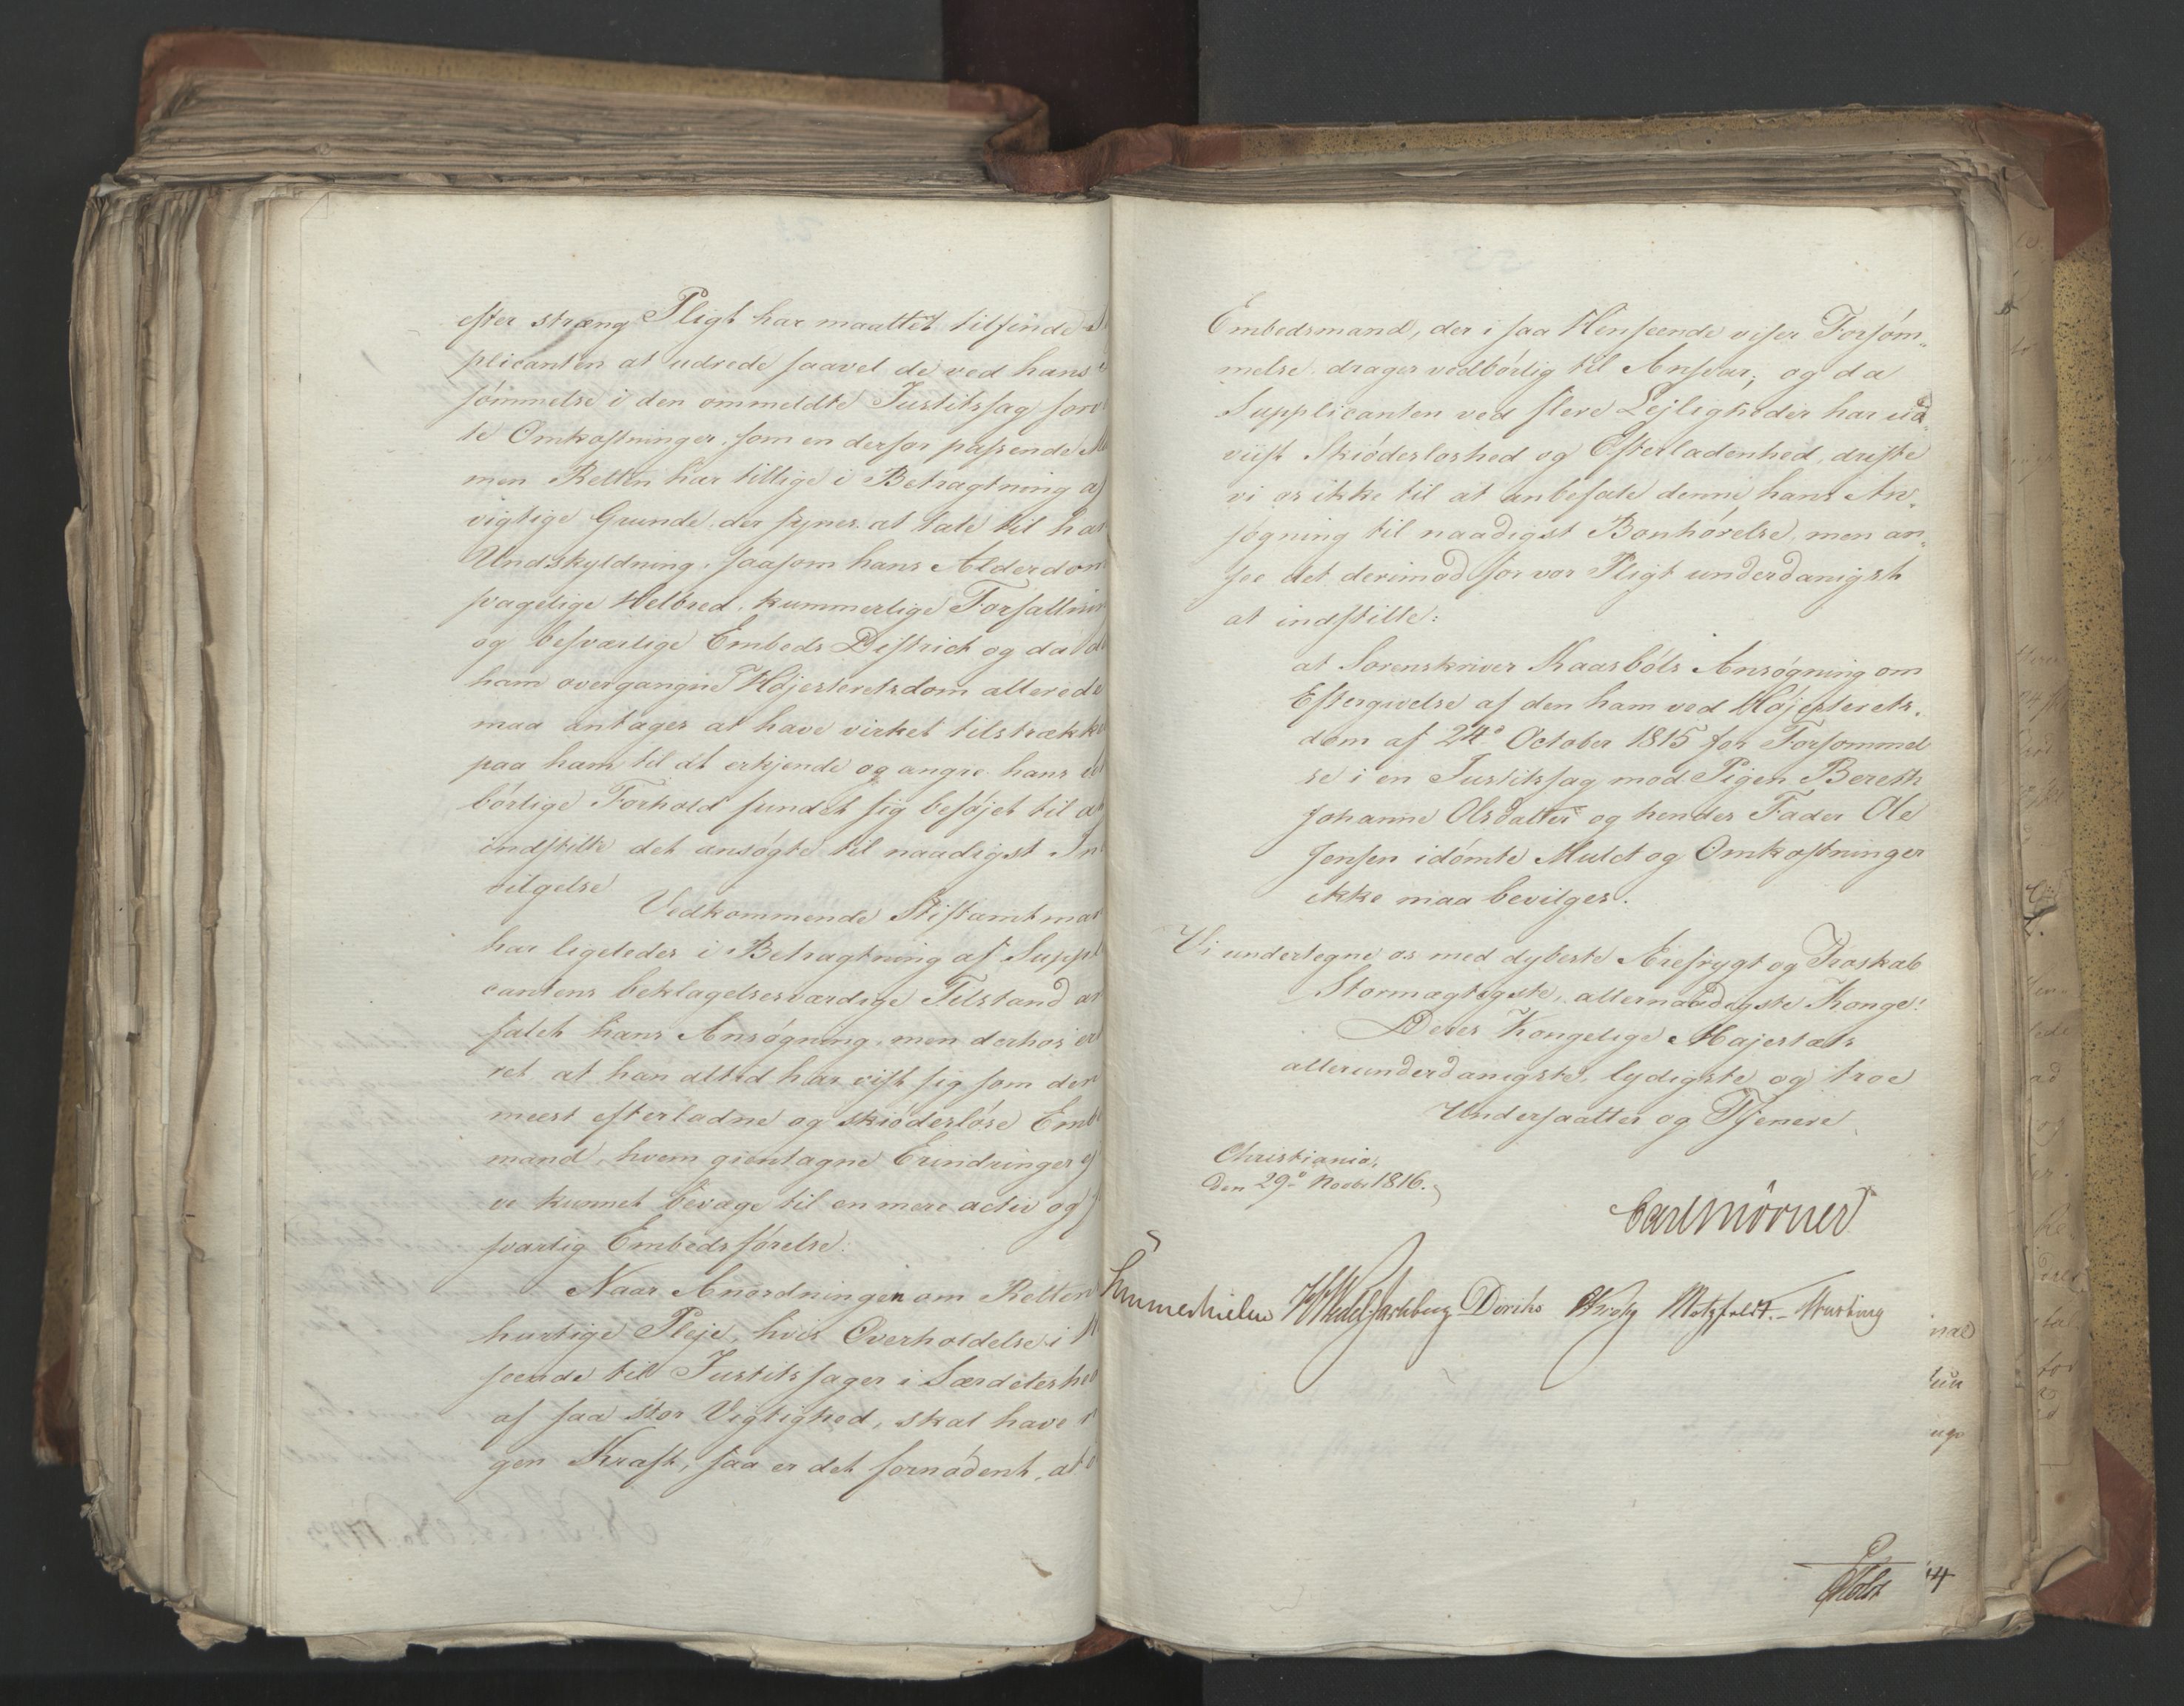 efter stræng Pligt har maattet tilfinde S
plicanten at udrede saavel de ved hans
sømmelse i den ommeldte Justitssag for
te Omkostninger, som en derfor passende M
men Retten har tillige i Betragtning af
vigtige Grunde, der synes at tale til hans
Undskyldning, saasom hans Alderdom
svagelige Helbred, kummerlige Forfatning
og besværlige Embeds District og da d
ham overgangne Højesteretsdom allerede
maa antages at have virket tilstrække
paa ham til at erkjende og angre hans
børlige Forhold fundet sig beføjet til at
indstille det ansøgte til naadigst In
vilgelse
Vedkommende Stiftamtman
har ligeledes i Betragtning af Suppl
cantens beklagelsesværdige Tilstand an
falet hans Ansøgning, men derhos er
ret at han altid har viist sig som den
meest efterladne og skiødesløse Emb
mand, hvem gientagne Erindringer ej
ve kunnet bevæge til en mere activ og
svarlig Embedsførelse.
Naar Anordningen om Retten
hurtige Pleje, hvis Overholdelse i H
seende til Justitssager i Særdeleshed
af saa stor Vigtighed, skal have n
gen Kraft, saa er det fornødent, at
Embedsmand, der i saa Henseende viser Forsøm„
melse drages vedbørlig til Ansvar; og da
Supplicanten ved flere Lejligheder har ud„
viist Skiødesloshed og Efterladenhed, driste
vi os ikke til at anbefale denne hans An„
søgning til naadigst Bønhørelse, men an„
see det derimod for vor Pligt underdanigst
at indstille:
at Sorenskriver Kaasbøls Ansøgning om
Eftergivelse af den ham ved Højesterets„
dom af 24de October 1815 for Forsømmel
se i en Justitssag mod Pigen Bereth
Johanne Olsdatter og hendes Fader Ole
Jensen idømte Mulct og Omkostninger
ikke maa bevilges.
Vi undertegne os med dybeste Ærefrygt og Troskab
Stormægtigste, allernaadigste Konge!
Deres Kongelige Majestæts
allerunderdanigste, lydigste og troe
Undersaatter og Tjenere
Christiania,
den 29de Novbr 1816.
Carl Mörner
Sommerhielm HWedel Jarlsberg Diriks Krohg Motzfeldt. Mursberg
Holst